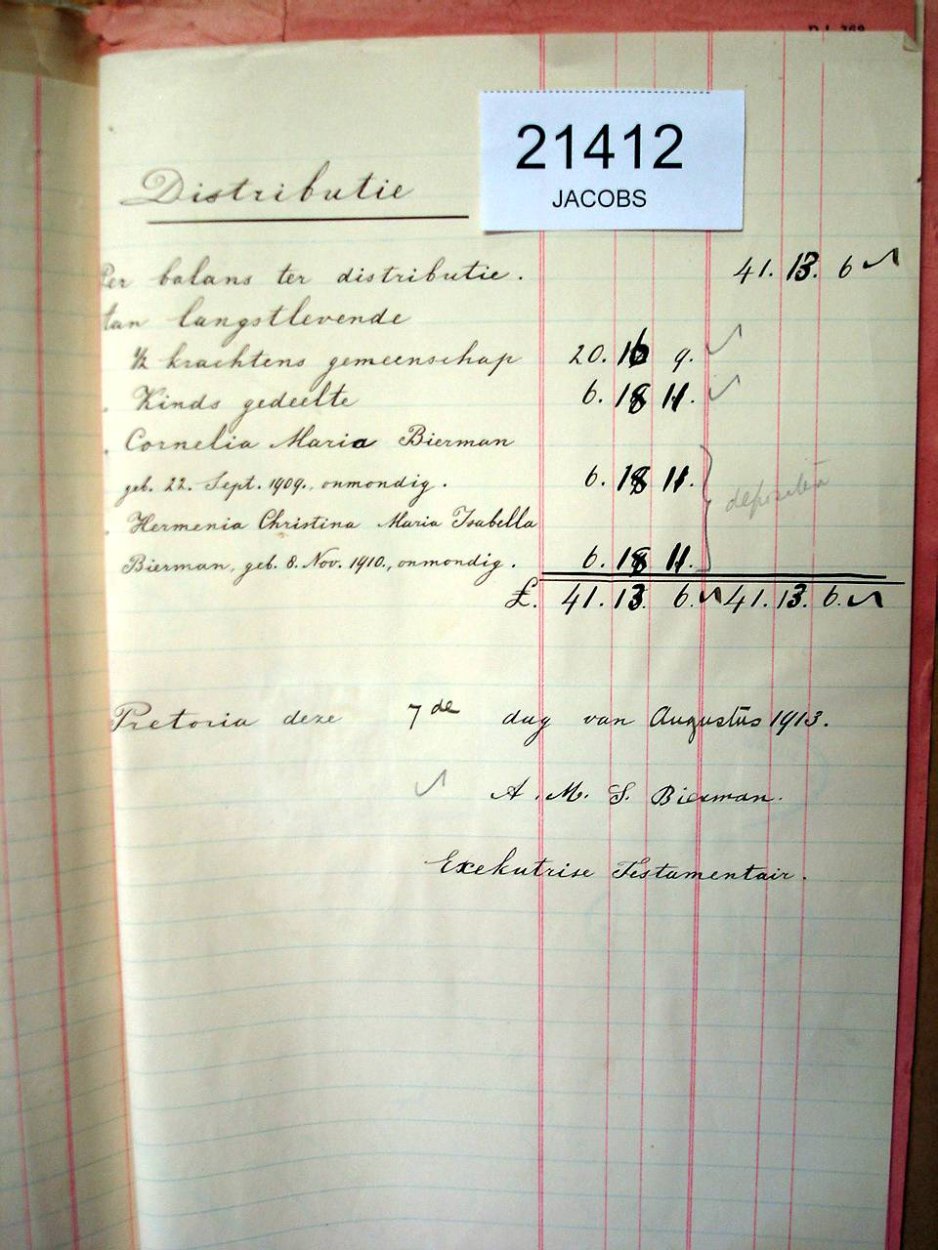 21412
JACOBS
Distributie
Per balans ter distributie. 41. 13. 6
Aan langstlevende
½ krachtens gemeenschap 20. 16 9.
. Kinds gedeelte 6. 18 11.
. Cornelia Maria Bierman
geb. 22. Sept. 1909., onmondig. 6. 18 11.
. Hermenia Christina Maria Isabella
Bierman, geb. 8. Nov. 1910., onmondig. 6. 18 11.
£. 41. 13. 6. 41. 13. 6.
Pretoria deze 7de dag van Augustus 1913.
A. M. S. Bierman.
Exekutrise Testamentair.